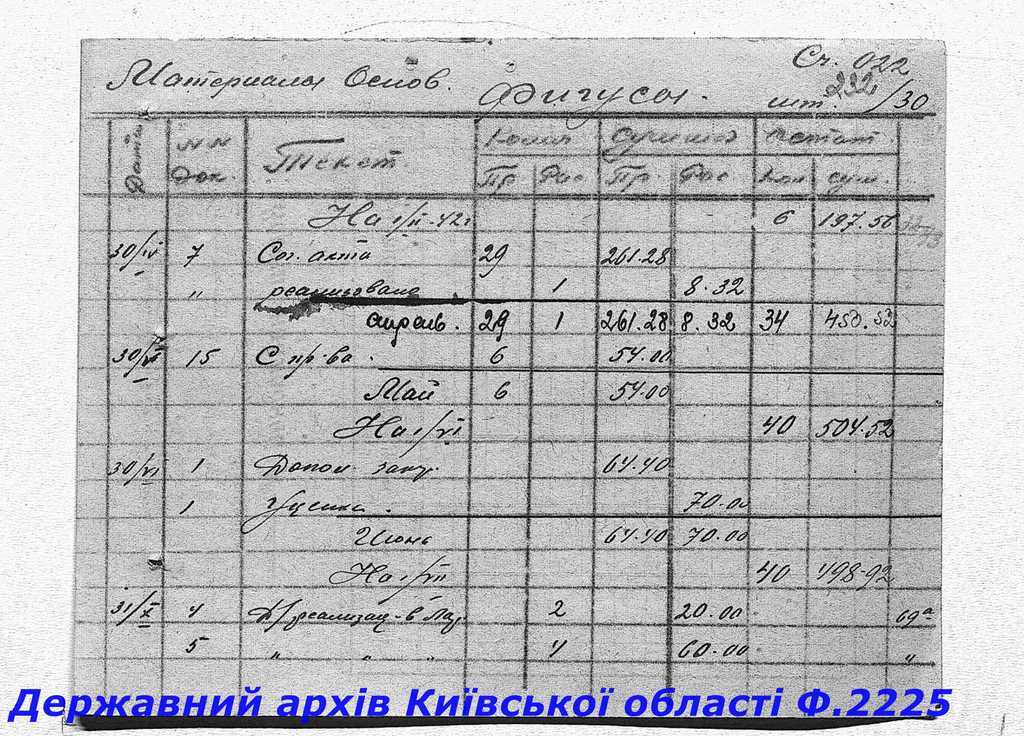 Материалы Основ. Фигусы. Сч. 022
232
шт. /30
Дата NN Док. Текст Колич Сумма Остат.
Пр Рас Пр. Рас Кол сум.
На 1/IV-42г 6 197.56
30/IV 7 Сог. акта 29 261.28
" реализовано 1 8.32
апрель. 29 1 261.28 8.32 34 450.52
30/V 15 С пр-ва. 6 54.00
Май 6 54.00
На 1/VI 40 504.52
30/VI 1 Допол. 64.40
1 Уценка. 70.00
Июнь 64.40 70.00
На 1/VII 40 498.92
31/X 4 реализац. в Лар. 2 20.00 69а
5 " " " 4 60.00 "
Державний архів Київської області Ф.2225